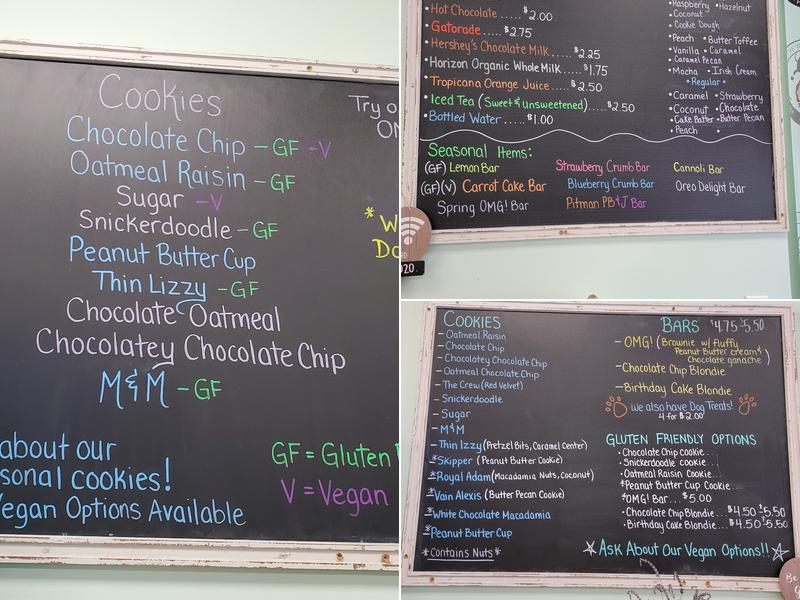 Cookies
Chocolate Chip - GF - V
Oatmeal Raisin - GF
Sugar - V
Snickerdoodle - GF
Peanut Butter Cup
Thin Lizzy - GF
Chocolate Oatmeal
Chocolatey Chocolate Chip
M&M - GF
Try o
ON
*W
Do
about our
sonal cookies!
Vegan Options Available
GF = Gluten
V = Vegan
Hot Chocolate ..... $2.00
• Gatorade ..... $2.75
• Hershey's Chocolate Milk .... $2.25
• Horizon Organic Whole Milk .... $1.75
• Tropicana Orange Juice .... $2.50
• Iced Tea (Sweet & unsweetened) ..... $2.50
• Bottled Water .... $1.00
Raspberry • Hazelnut
• Coconut
Cookie Dough
Peach • Butter Toffee
Vanilla • Caramel
Caramel Pecan
• Mocha • Irish Cream
• Regular •
• Caramel • Strawberry
• Coconut • Chocolate
• Cake Batter • Butter Pecan
• Peach
Seasonal Items:
(GF) Lemon Bar
(GF)(V) Carrot Cake Bar
Spring OMG! Bar
Strawberry Crumb Bar
Blueberry Crumb Bar
Pitman PB&J Bar
Cannoli Bar
Oreo Delight Bar
020
COOKIES
- Oatmeal Raisin
- Chocolate Chip
- Chocolatey Chocolate Chip
- Oatmeal Chocolate Chip
- The Crew (Red Velvet)
- Snickerdoodle
- Sugar
- M&M
- Thin Lizzy (Pretzel Bits, Caramel Center)
*Skipper (Peanut Butter Cookie)
*Royal Adam (Macadamia Nuts, Coconut)
*Vain Alexis (Butter Pecan Cookie)
*White Chocolate Macadamia
*Peanut Butter Cup
*Contains Nuts*
BARS $4.75 $5.50
- OMG! (Brownie w/ fluffy
Peanut Butter cream &
chocolate ganache)
- Chocolate Chip Blondie
- Birthday Cake Blondie
we also have Dog Treats!
4 for $2.00
GLUTEN FRIENDLY OPTIONS
• Chocolate Chip cookie
• Snickerdoodle cookie
• Oatmeal Raisin Cookie
*Peanut Butter Cup Cookie
*OMG! Bar... $5.00
• Chocolate Chip Blondie... $4.50 $5.50
• Birthday Cake Blondie... $4.50 $5.50
Ask About Our Vegan Options!!